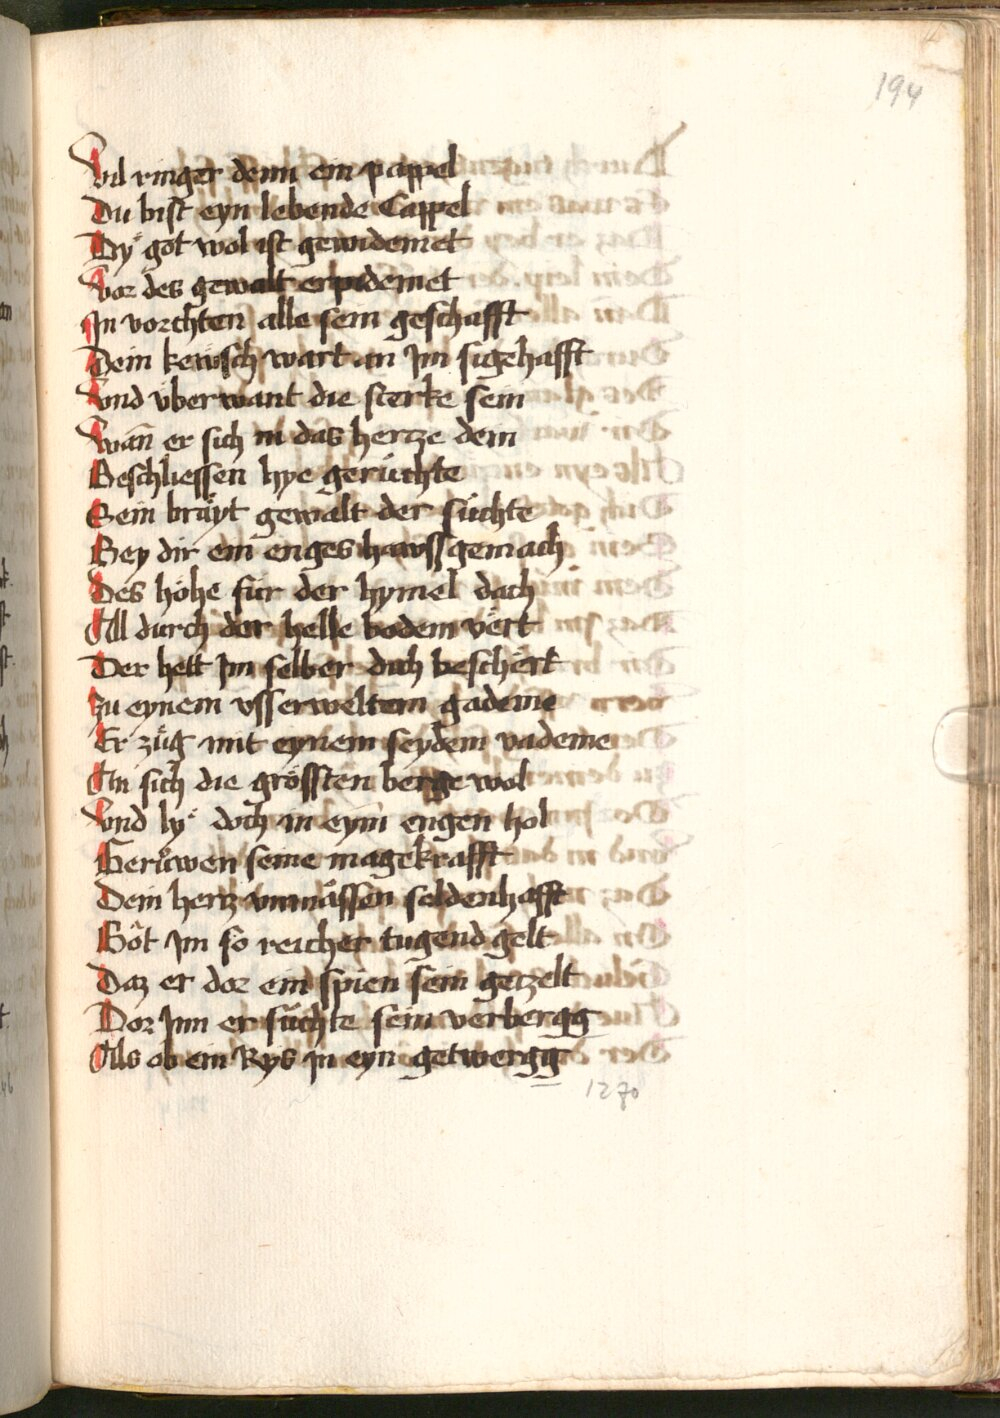 194
Vil ringer denn ein pappel
Du bist eyn lebende Cappel
Dy got wol ist gewidemet
Vor des gewalt erpidemet
In vorchten alle sein geschafft
Dein kewsch wart an Im sigehafft
Vnd vberwant die sterke sein
Wañ er sich in das hertze dein
Beschliessen hye gerůchte
Sein bräyt gewalt der sůchte
Bey dir ein enges hawssgemach
Des höhe für der hymel dach
All durch der helle bodem vert
Der hett Im selber dich beschert
Zu eynem vsserweltem gademe
Er züg mit eynem seydem vademe
An sich die grössten berge wol
Vnd ly doch in eym engen hol
Gerůwen seine magekrafft
Dein hertz vnmässen seldenhafft
Bôt Im so reicher tugend gelt
Daz er dor ein spien sein getzelt
Dor Inn er sůchte sein verbergg
Als ob ein Rys in eyn getwergg
1270